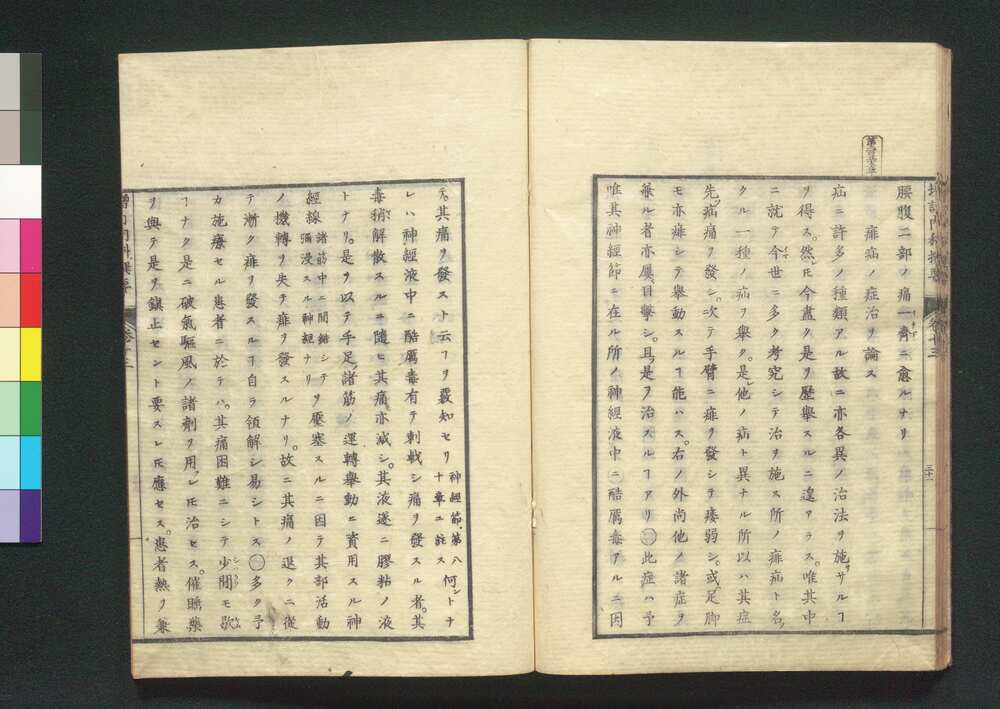 腰腹二部ノ痛一齊ニ愈ルナリ
痱疝ノ症治ヲ論ス
疝ニ許多ノ種類アル故ニ亦各異ノ治法ヲ施サルヿ
ヲ得ス。然𪜈今盡ク是ヲ歴舉スルニ遑アラス。唯其中
ニ就テ今世ニ多ク考究シテ治ヲ施ス所ノ痱疝ト名
クル一種ノ疝ヲ舉ク。是レ他ノ疝ト異ナル所以ハ其症
先ツ疝痛ヲ發シ。次テ手臂ニ痱ヲ發シテ痿弱シ。或ハ足脚
モ亦痱シテ舉動スルヿ能ハス。右ノ外尚他ノ諸症ヲ
兼ル者亦屢目擊シ。且ツ是ヲ治スルヿアリ㊀此症ハ予
唯其神經節ニ在ル所ノ神經液中ニ酷厲毒アルニ因
テ。其痛ヲ發スト云フヿヲ覈知セリ 神經節。第八十章ニ註ス 何ントナ
レハ神經液中ニ酷厲毒有テ刺戟シ痛ヲ發スル者。其
毒稍解散スルニ隨ヒ其痛亦減シ。其液遂ニ膠粘ノ液
トナリ。是ヲ以テ手足諸筋ノ運轉舉動ニ資用スル神
經線 諸筋中ニ間錯シテ彌浸スル神經ナリ ヲ壓塞スルニ因テ其部活動
ノ機轉ヲ失テ痱ヲ發スルナリ。故ニ其痛ノ退クニ從
テ漸ク痱ヲ發スルヿ自ラ領解シ易シトス㊀多ク予
カ施療セル患者ニ於テハ。其痛困難ニシテ少間モ歇
ヿナク是ニ破氣驅風ノ諸劑ヲ用レ𪜈治セス。催睡藥
ヲ與テ是ヲ鎭止セント要スレ𪜈應セス。患者熱ヲ兼